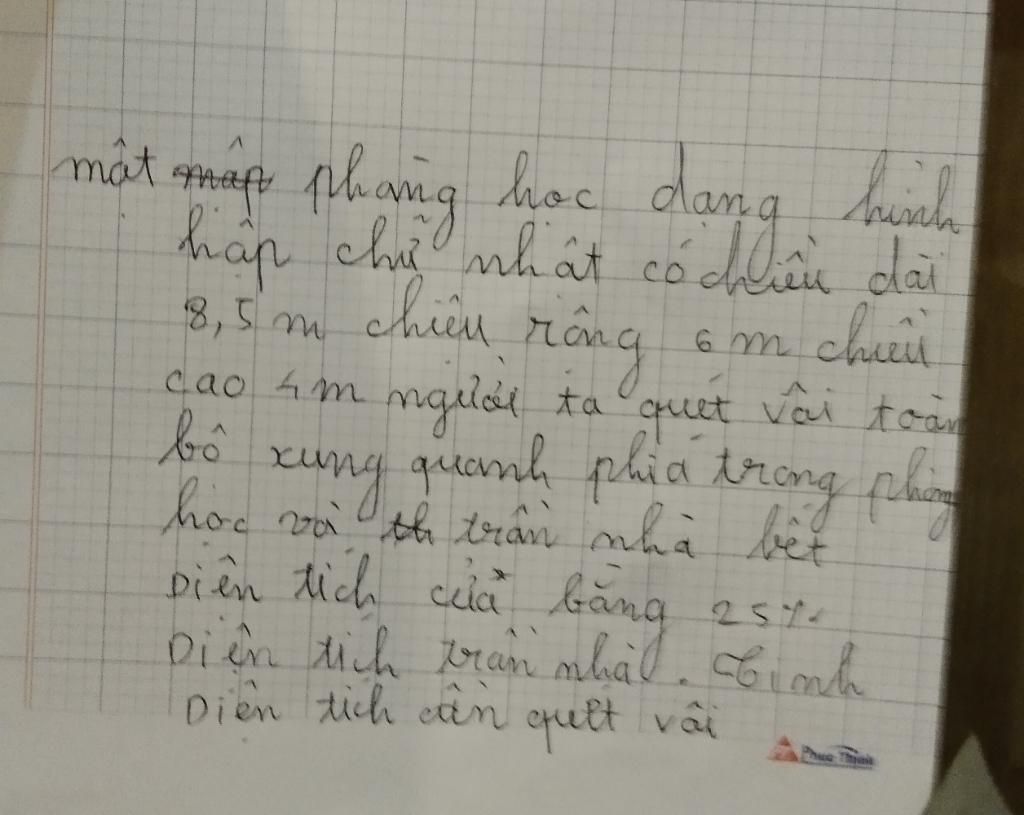 một phòng học dạng hình
hộp chữ nhật có chiều dài
8,5 m chiều rộng 6 m chiều
cao 4m người ta quét vôi toàn
bộ xung quanh phía trong phòng
học và trần nhà biết
Diện tích cửa bằng 25%
Diện tích trần nhà. Tính
Diện tích cần quét vôi
Phuc Thịnh